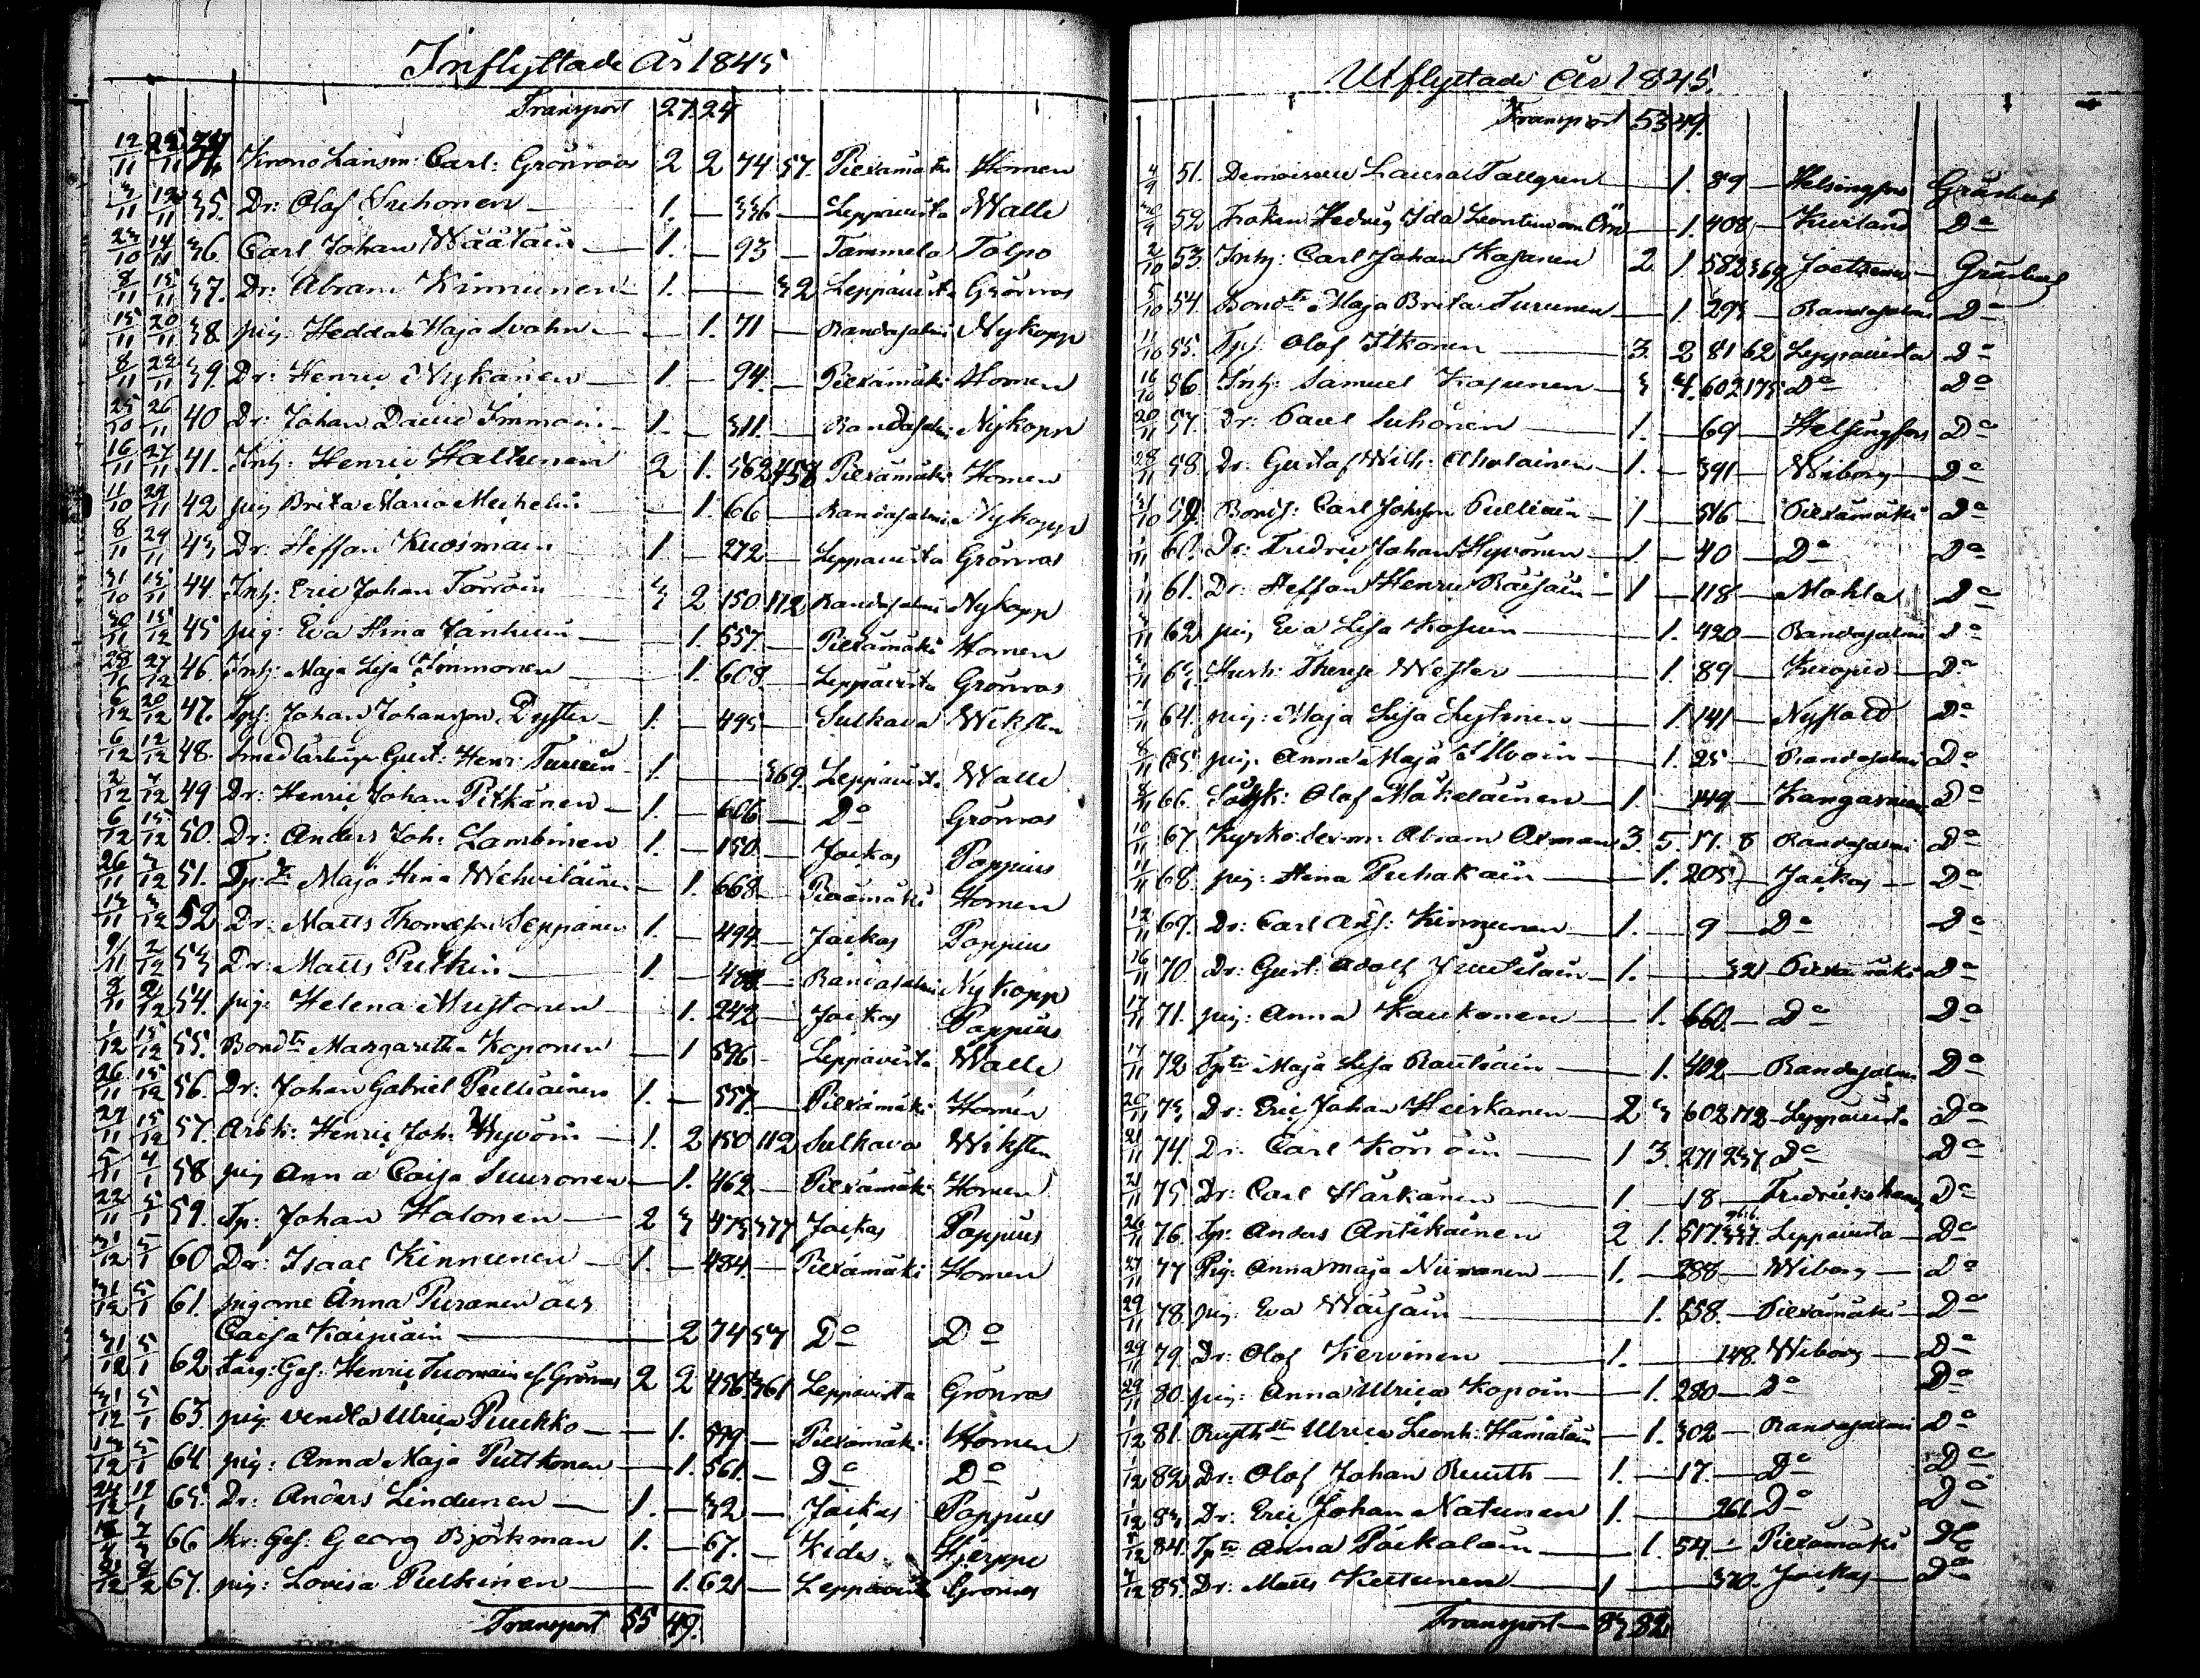 Inflyttade År 1845
Transport 27. 24
12/11 Krono Länsm: Carl: Grönroos 2 2 74 57. Piexämäki Homen
35. Dr: Olof Suhonen 1. — 336 — Leppävirta Walle
23/10 14/11 36 Carl Johan Wäätäin 1. — 93 — Tammela Tolpo
8/11 15/11 37. Dr: Abram Kinnunen 1. — 32 Leppävirta Grönros
15/11 20/11 38 pig. Hedda Maja Svahn — 1. 71 — Randasalmi Nykopp
8/11 22/11 39. Dr: Henric Nykänen 1. — 94. — Piexämäki Homen
25/10 26/11 40 Dr: Johan David Immoin 1. — 311. — Randasalmi Nykopp
16/11 27/11 41. Inh: Henric Haltunen 2 1. 562 458 Piexämäki Homen
11/10 29/11 42 pig Brita Maria Meihelin — 1. 66 — Randasalmi Nykopp
8/11 29/11 43 Dr: Steffan Kuosmain 1 — 272 — Leppävirta Grönros
31/10 15/11 44. Inh: Eric Johan Torroin 3 2 150 112 Randasalmi Nykopp
30/11 15/12 45 pig: Eva Stina Janhuin — 1. 557. — Piexämäki Homen
28/11 27/12 46. Inh: Maja Lisa Immonen — 1. 608. — Leppävirta Grönros
6/12 20/12 47. Johan Johansson Dyster 1. — 495 — Sulkava Wiksten
6/12 12/12 48. Smedlärling Gust: Henr: Turuin 1. — 369. Leppävirta Walle
2/12 4/12 49 Dr: Henric Johan Pitkänen 1. — 606 — Do Grönros
6/12 15/12 50. Dr: Anders Joh: Lambinen 1. — 150. — Jockas Poppius
26/11 3/12 51. Maja Stina Wehviläinen — 1. 668. — Piexämäki Homen
52 Dr: Matts Thomasson Seppänen 1. — 494 — Jockas Poppius
53 Dr: Matts Pulkin 1. — Randasalmi Nykopp
54. pig: Helena Mustonen — 1. 242 — Jockas Poppius
1/12 15/12 55. Bondtr Margaretha Koponen — 1 596 — Leppävirta Walle
26/11 15/12 56. Dr: Johan Gabriel Pulliainen 1. — 557. — Piexämäki Homén
27/11 15/12 57. Arbk: Henric Joh: Hyvöin 1. 2 150 112 Sulkava Wiksten
5/11 4/1 58 pig Anna Caisa Suuronen — 1. 462 — Piexämäki Homen
22/11 5/1 59. Tp: Johan Halonen 2 3 475 377 Jockas Poppius
31/12 5/1 60 Dr: Isaac Kinnunen 1. — 484. — Piexämäki Homen
31/12 5/1 61. pigorne Anna Puranen och
Caisa Kaipiain — 2 74 57 Do Do
31/12 5/1 62 Färg: Ges: Henric Tuomain 2 2 456 361 Leppävirta Grönros
31/12 5/1 63. pig. Vendla Ulrica Puukko — 1. 599 — Piexämäki Homen
64 pig: Anna Maja Puttkonen — 1. 561. — Do Do
24/12 12/1 65. Dr: Anders Lindunen 1. — 32 — Jockas Poppius
66 Skr: Ges: Georg Björkman 1. — 67. — Kides Hjerppe
67. pig: Lovisa Pulkinen — 1. 621 — Leppävirta Grönros
Transport 55 49.
Utflyttade År 1845.
Transport 53 49.
4/9 51. Demoiselle Laura Tallgren — 1. 89 — Helsingfors Gråsten
52 Fröken Hedvig Ida — 1. 408 — Kurland Do
2/10 53. Inh: Carl Johan Kasanen 2. 1. 582 369 Gråsten
5/10 54. Bondtr Maja Brita Turunen — 1. 293 — Randasalmi Do
11/10 55. Olof Itkonen 3. 2 81 62 Leppävirta Do
16/10 56. Inh: Samuel Kasunen 3 4. 602 175 Do Do
20/11 57. Dr: Paul Suhonen 1. — 69 — Helsingfors Do
28/11 58. Dr: Gustaf Wilh: Aholainen 1. — 391 — Wiborg Do
31/10 59. Bonds: Carl Johsson Pulliain 1 — 516 — Piexämäki Do
60. Dr: Fredric Johan Hyvönen 1. — 40 — Do Do
1/11 61. Dr: Steffan Henric Räisäin 1 — 118 — Mohla Do
62 pig Eva Lisa Kosuin — 1. 420 — Randasalmi Do
63 Hush: Therese Wesler — 1 89 — Kuopio Do
64. pig: Maja Lisa Lyytinen — 1. 141 — Nystad Do
8/11 65. pig. Anna Maja Ilvoin — 1. 25 — Randasalmi Do
8/11 66. Olof Mäkeläinen 1. — 149 — Kangasniemi Do
10/11 67 Kyrko Abram Axman 3. 5. 17. 8 Randasalmi Do
11/11 68. pig: Stina Puhakain — 1. 205 — Jockas Do
12/11 69. Dr: Carl Kinnunen 1. — 9 — Do Do
16/11 70. Dr: Gust: Adolf Juutilain 1. — 321 Piexämäki Do
17/11 71. pig: Anna Kaukonen — 1. 660. — Do Do
17/11 72 Maja Lisa Rautiain — 1. 402 — Randasalmi Do
20/11 73 Dr: Eric Johan Heiskanen 2 3 602 172 Leppävirta Do
21/11 74. Dr. Carl Kor oin 1 3. 271 237 Do Do
21/11 75. Dr: Carl Härkänen 1. — 18 — Fredrickshamn Do
26/11 76. Tp: Anders Antikäinen 2 1. 517. 337. Leppävirta Do
27/11 77 Pig: Anna Maja Niiranen 1. — 288 — Wiborg Do
29/11 78. pig. Eva Wäisäin — 1. 558. — Piexämäki Do
29/11 79. Dr: Olof Kervinen 1. — 148. Wiborg Do
29/11 80. pig: Anna Ulrica Kopoin — 1. 280 — Do Do
1/12 81. Ulrica Leonh: Hämäläin — 1. 302 — Randasalmi Do
1/12 82 Dr: Olof Johan Ruuth 1. — 17. — Do Do
1/12 83 Dr: Eric Johan Natunen 1. — 261 Do Do
84. Anna Paikalain — 1. 54 — Piexämäki Do
85. Dr: Matts Kettunen 1 — 370. Jockas Do
Transport 83 82